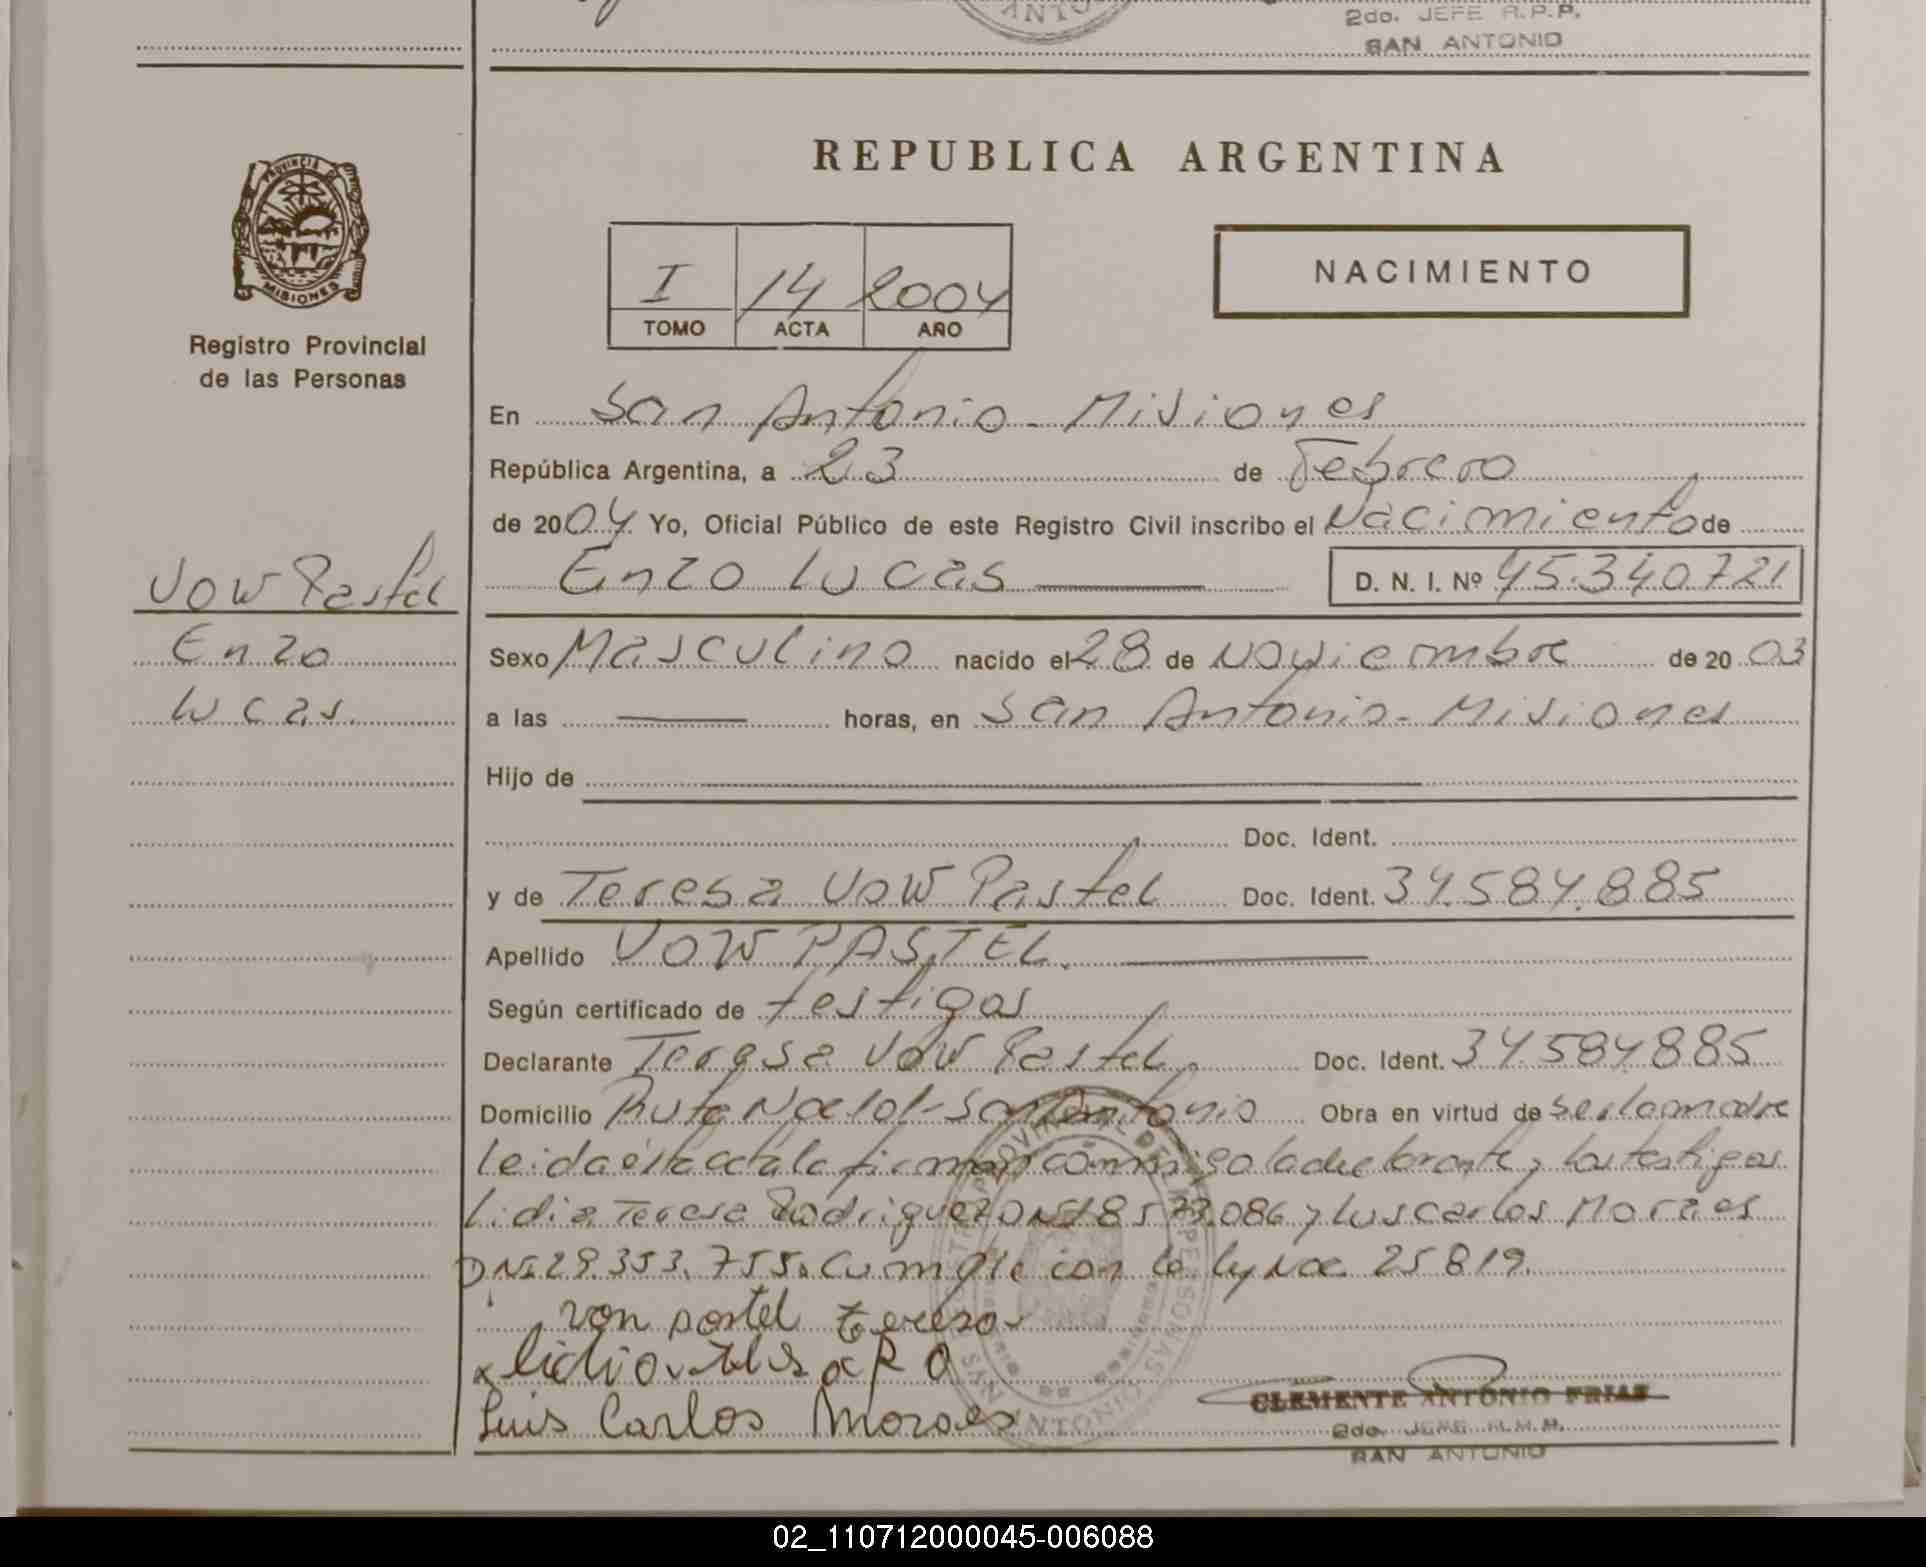 2do. JEFE R.P.P.
SAN ANTONIO
PROVINCIA DE
MISIONES
Registro Provincial
de las Personas
REPUBLICA ARGENTINA
I 14 2004
TOMO ACTA AÑO
NACIMIENTO
En San Antonio - Misiones
República Argentina, a 23 de Febrero
de 2004 Yo, Oficial Público de este Registro Civil inscribo el Nacimiento de
Enzo Lucas D. N. I. Nº 45.340.721
VOW Pastel
Enzo
Lucas.
Sexo Masculino nacido el 28 de Noviembre de 2003
a las horas, en San Antonio - Misiones
Hijo de
Doc. Ident.
y de Teresa VOW Pastel Doc. Ident. 34.584.885
Apellido VOW PASTEL.
Según certificado de testigos
Declarante Teresa VOW Pastel. Doc. Ident. 34.584.885
Domicilio Ruta Nac 101 - San Antonio Obra en virtud de ser la madre
leida ésta acta la firman conmigo la declarante, los testigos
Lidia Teresa Rodriguez DNI 18573.086 y Luis Carlos Moraes
DNI 29.353.755. Cumple con la ley Nac. 25819.
von pastel tereza
Luis Carlos Moraes
CLEMENTE ANTONIO FRIAS
2do. JEFE R.P.P.
SAN ANTONIO
02_110712000045-006088